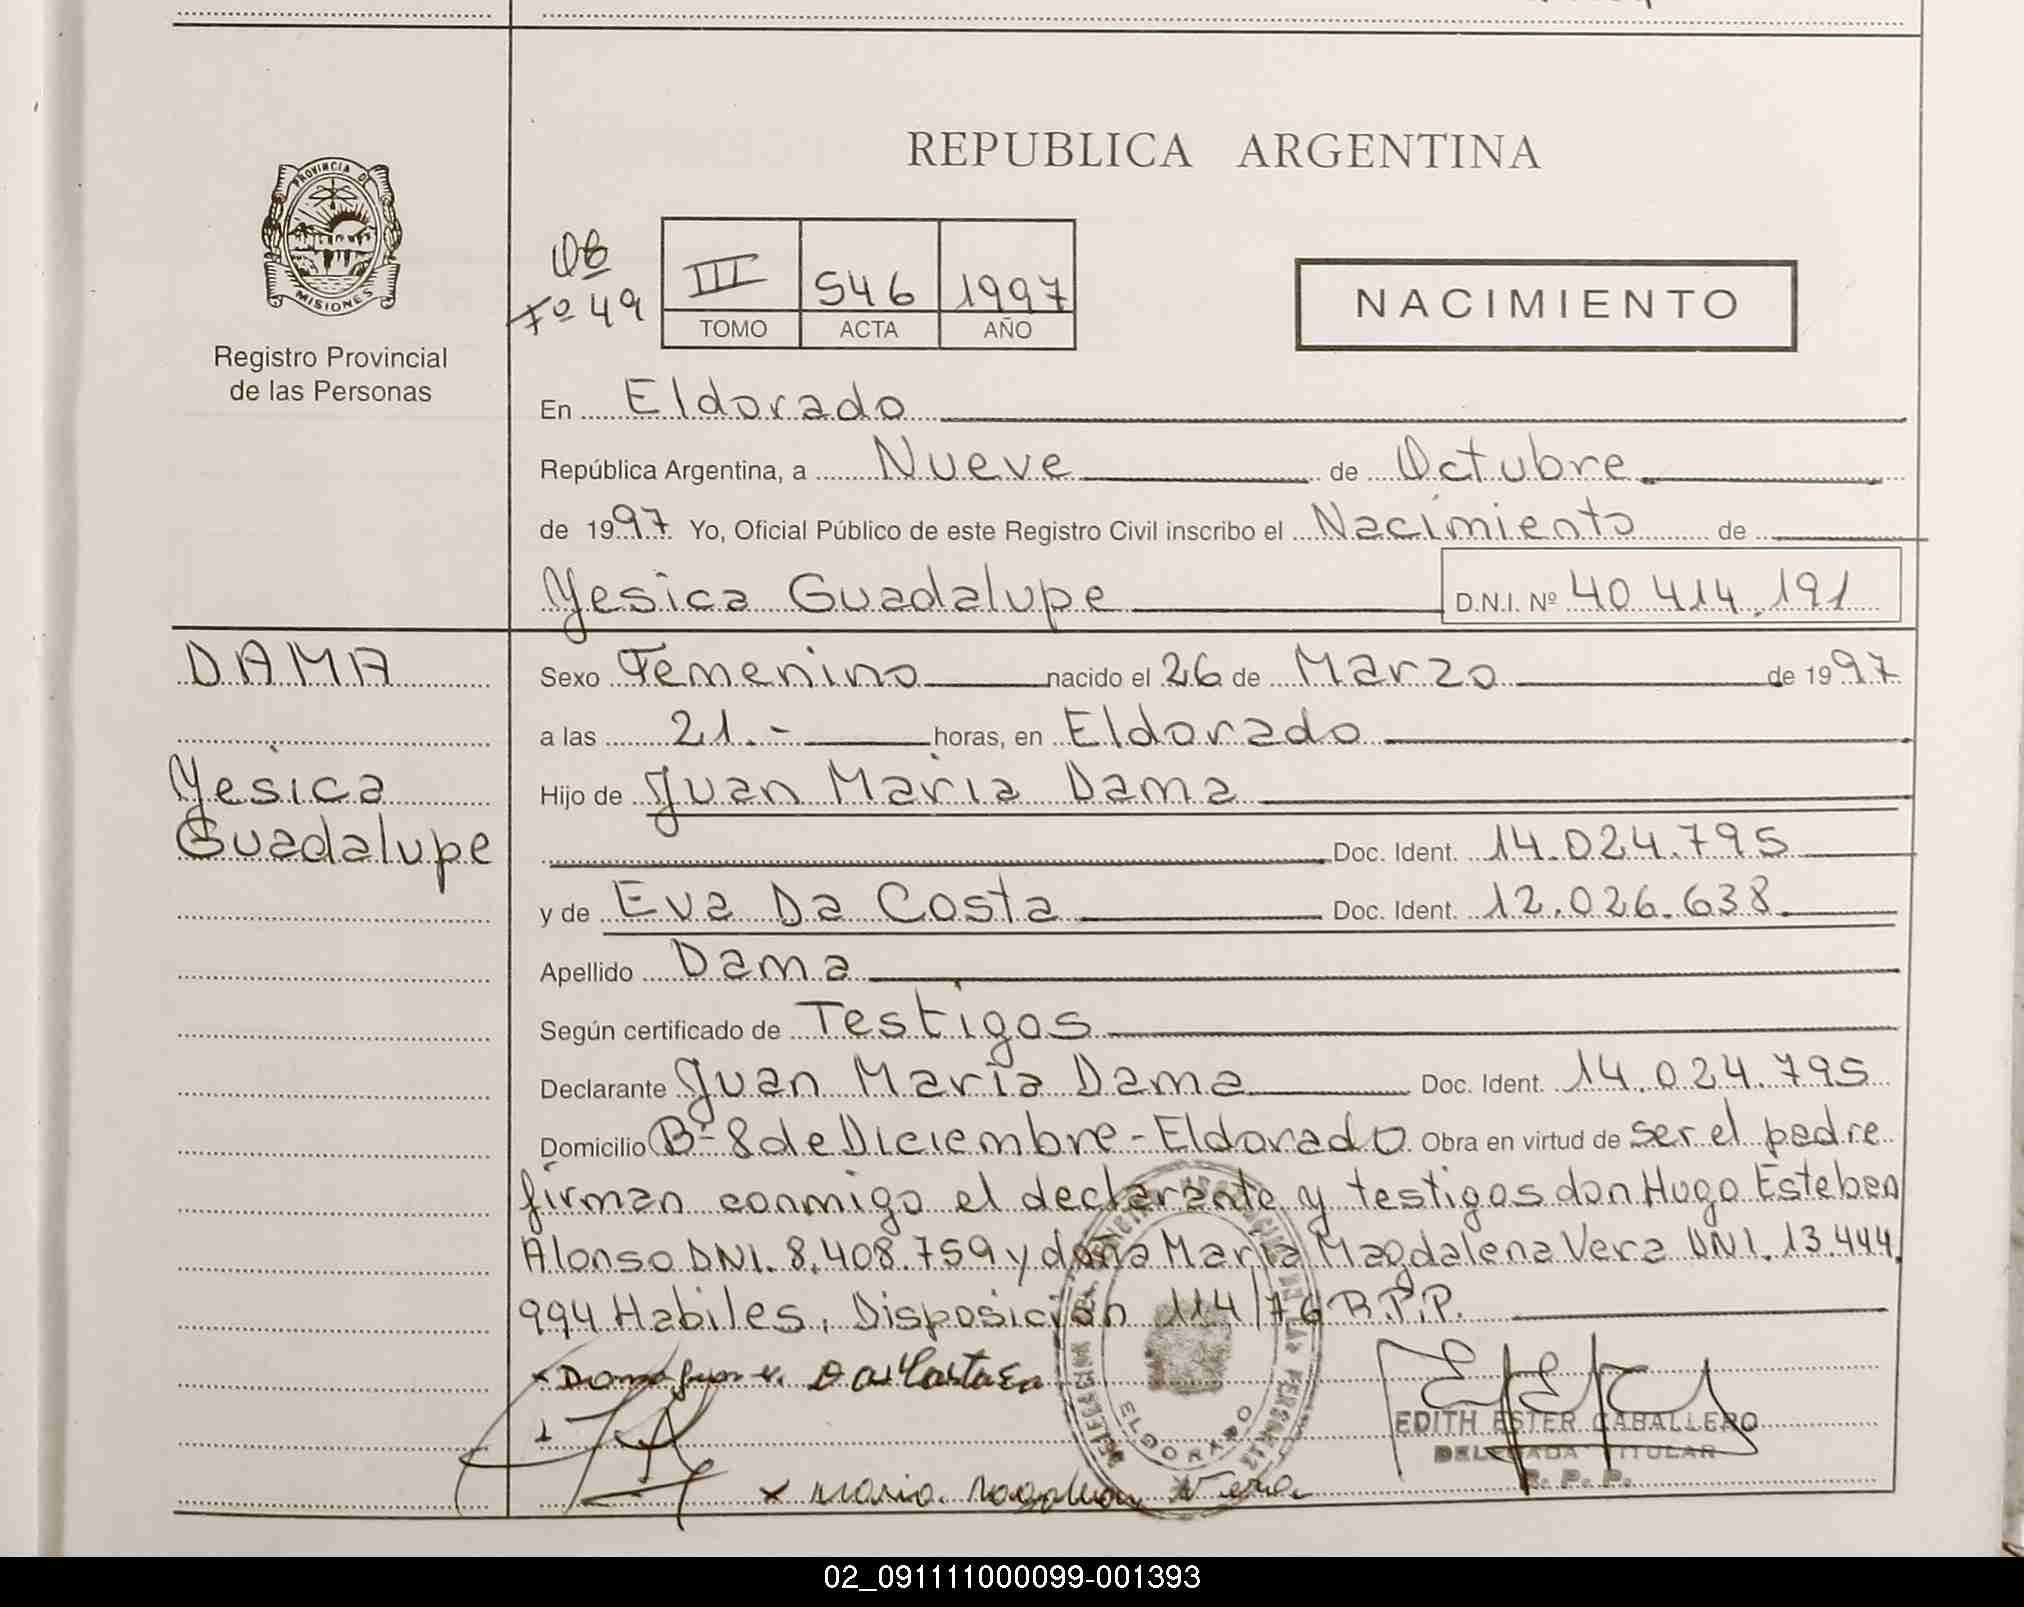 REPUBLICA ARGENTINA
PROVINCIA DE
MISIONES
Registro Provincial
de las Personas
Fº 49
III 546 1997
TOMO ACTA AÑO
NACIMIENTO
En Eldorado
República Argentina, a Nueve de Octubre
de 1997 Yo, Oficial Público de este Registro Civil inscribo el Nacimiento de
Yesica Guadalupe D.N.I. Nº 40.414.191
DAMA
Yesica
Guadalupe
Sexo Femenino nacido el 26 de Marzo de 1997
a las 21.- horas, en Eldorado
Hijo de Juan Maria Dama
Doc. Ident. 14.024.795
y de Eva Da Costa Doc. Ident. 12.026.638
Apellido Dama
Según certificado de Testigos
Declarante Juan Maria Dama Doc. Ident. 14.024.795
Domicilio Bº 8 de Diciembre - Eldorado Obra en virtud de ser el padre
firman conmigo el declarante y testigos don Hugo Esteban
Alonso DNI. 8.408.759 y doña Maria Magdalena Vera DNI. 13.444.
994 Habiles, Disposición 114/76 R.P.P.
ELDORADO
EDITH ESTER CABALLERO
DELEGADA TITULAR
R. P. P.
Vera
02_091111000099-001393